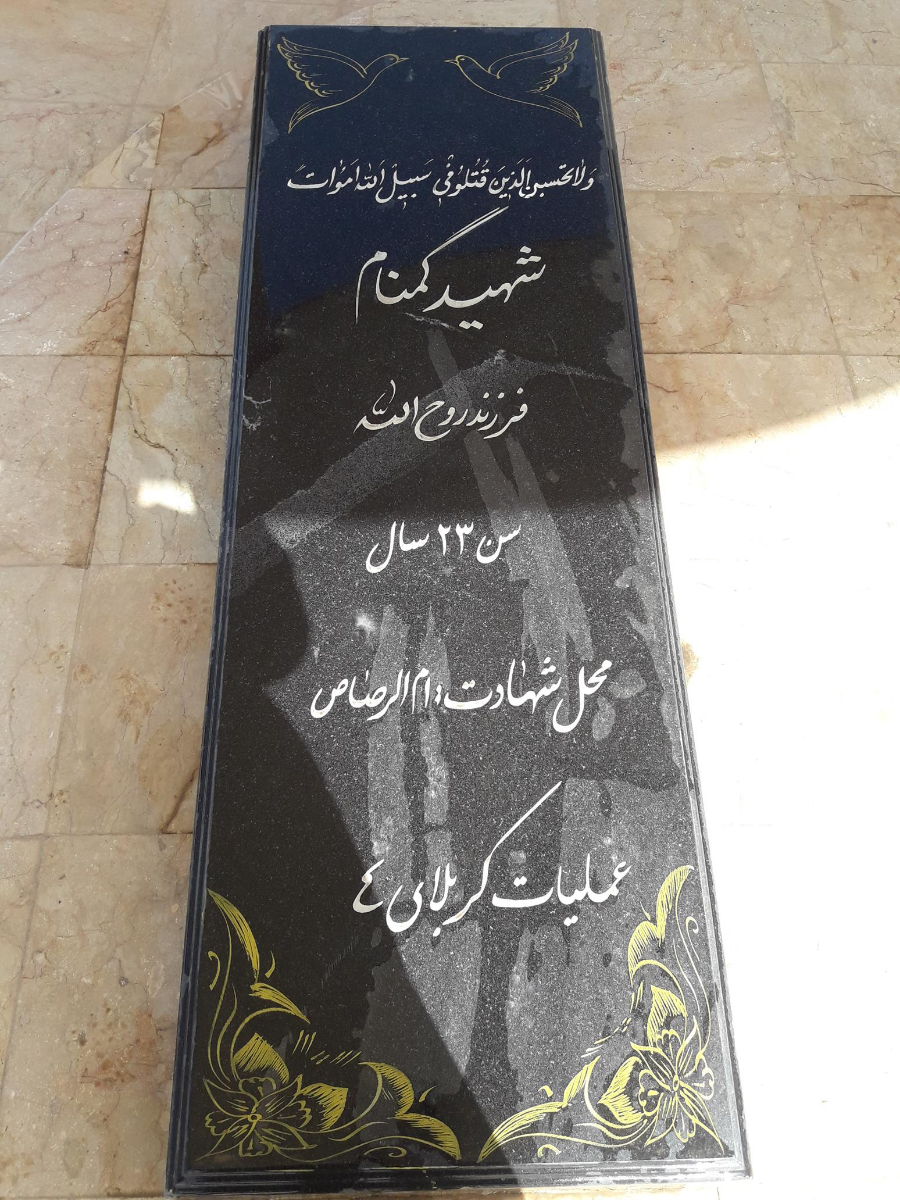 وَلاٰتحسبن الَذینَ قُتُلوُفیْ سَبیلِ اَللّٰه اَموٰاتً
شهید گمنام
فرزند روح الله
سن ۲۳ سال
محل شهادت : ام الرصاص
عملیات کربلای ٤